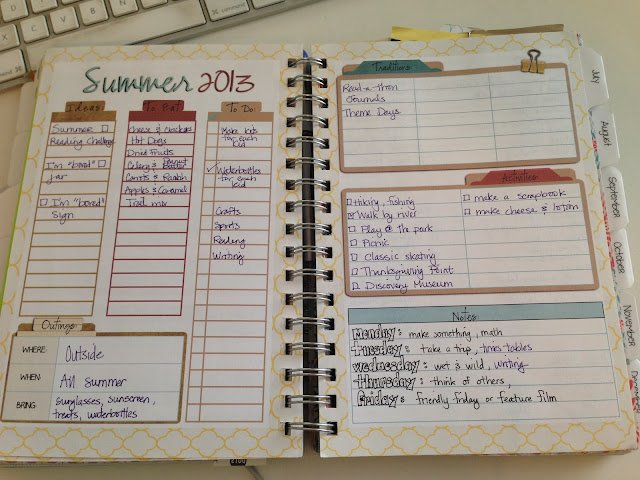 Summer 2013
Ideas
Summer
Reading Challenge
I'm "bored"
jar
I'm "bored"
Sign
To Eat
Cheese & Crackers
Hot Dogs
Dried Fruits
Celery & Peanut Butter
Carrots & Ranch
Apples & Caramel
Trail mix
To Do:
Make kits
for each
kid
Waterbottles
for each
kid
Crafts
Sports
Reading
Writing
Outings
WHERE: Outside
WHEN: All Summer
BRING: Sunglasses, sunscreen,
treats, waterbottles
Traditions
Read-a-thon
Journals
Theme Days
Activities
Hiking, fishing
Walk by river
Play @ the park
Picnic
Classic skating
Thanksgiving Point
Discovery Museum
make a scrapbook
make cheese &
Notes
Monday: make something, math
Tuesday: take a trip, times tables
Wednesday: wet & wild, writing
Thursday: think of others,
Friday: friendly friday or feature film
July
August
September
October
November
December
command